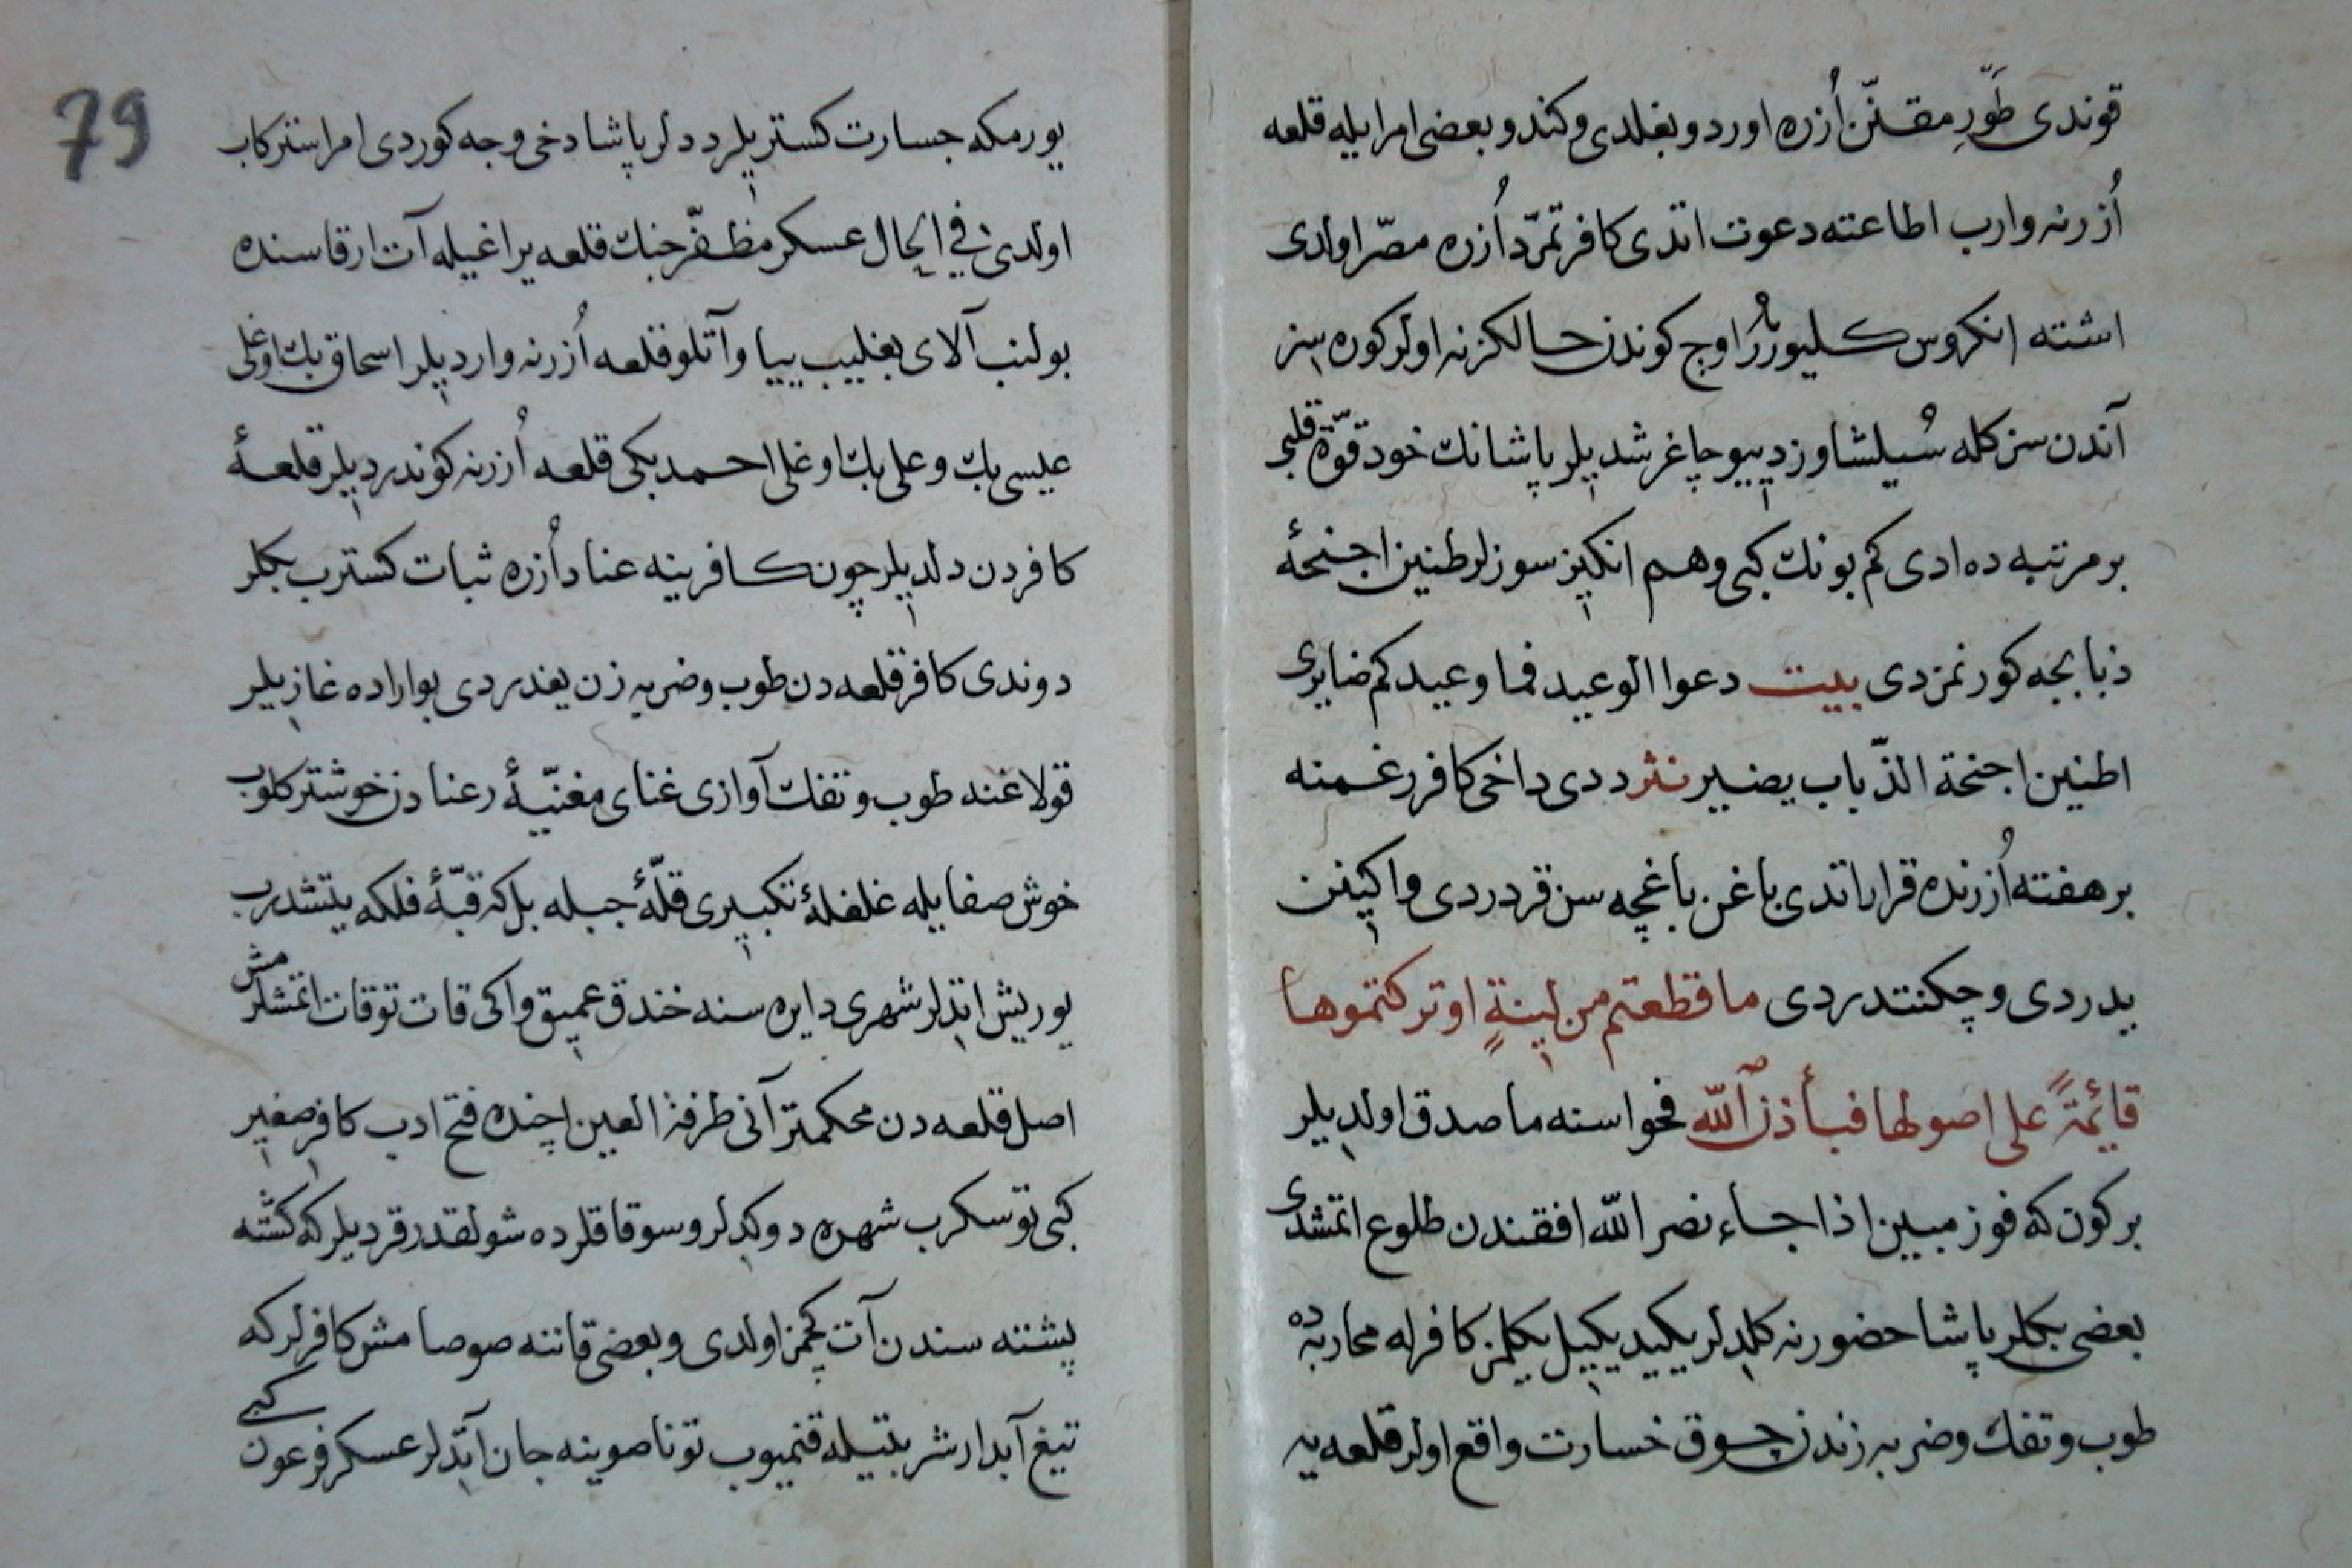 قوندی طَوْرِ مقنّن اُزره اوردو بغلدی و کندو بعضی امرا یله قلعه
اُزرنه وارب اطاعته دعوت اتدی کافر تمرّد اُزره مصرّ اولدی
اشته انکروس کلیورُرُ اوچ کوندن حالکز نه اولر کوره سز
آندن سز کله سُیلشاوز دیپو چاغرشدیلر پاشانك خود قوّة قلبی
بر مرتبه ده ادی کم بونك کبی وهم انکیز سوزلر طنین اجنحۀ
ذبابجه کورنمزدی بیت دعوا الوعید فما وعیدکم ضایری
اطنین اجنحة الذّباب یضیر نثر ددی داخی کافر رغمنه
بر هفته اُزرنده قرار اتدی باغن باغچه سن قردردی و اکینن
یدردی و چکنتدردی ما قطعتم من لینةٍ او ترکتموها
قایٔمةً علی اصولها فبأذن اللّه فحواسنه ماصدق اولدیلر
بر کون که فوز مبین اذا جاء نصر اللّه افقندن طلوع اتمشدی
بعضی بکلر پاشا حضورنه کلدلر یکید یکیل یکلمز کافرله محاربه ده
طوب و تفك و ضربه زندن چوق خسارت واقع اولر قلعه یه
79
یورمکه جسارت کستریلر ددلر پاشا دخی وجه کوردی امرا سترکاب
اولدی فی الحال عسکر مظفّر جنك قلعه یراغیله آت ارقاسنده
بولنب آلای بغلیب ییا و آتلو قلعه اُزرنه واردیلر اسحاق بك اوغلی
عیسی بك و علی بك اوغلی احمد بکی قلعه اُزرنه کوندردیلر قلعۀ
کافردن دلدیلر چون کافر ینه عناد اُزره ثبات کسترب بکلر
دوندی کافر قلعه دن طوب و ضربه زن یغدردی بو اراده غازیلر
قولاغنه طوب و تفك آوازی غنای مغنیّۀ رعنادن خوشتر کلوب
خوش صفا یله غلغلۀ تکبیری قلّۀ جبله بل که قبّۀ فلکه یتشدرب
یوریش اتدلر شهری دایره سنه خندق عمیق و اکی قات توقات اتمشلرمش
اصل قلعه دن محکمتر آنی طرفة العین اچنده فتح ادب کافر صغیر
کبی توسکرب شهره دوکدلر و سوقاقلرده شولقدر قردیلر که کشته
پشته سندن آت کچمز اولدی و بعضی قاننه صوصامش کافرلر که
تیغ آبدار شربتیله قنمیوب تونا صوینه جان اتدلر عسکر فرعون کبی